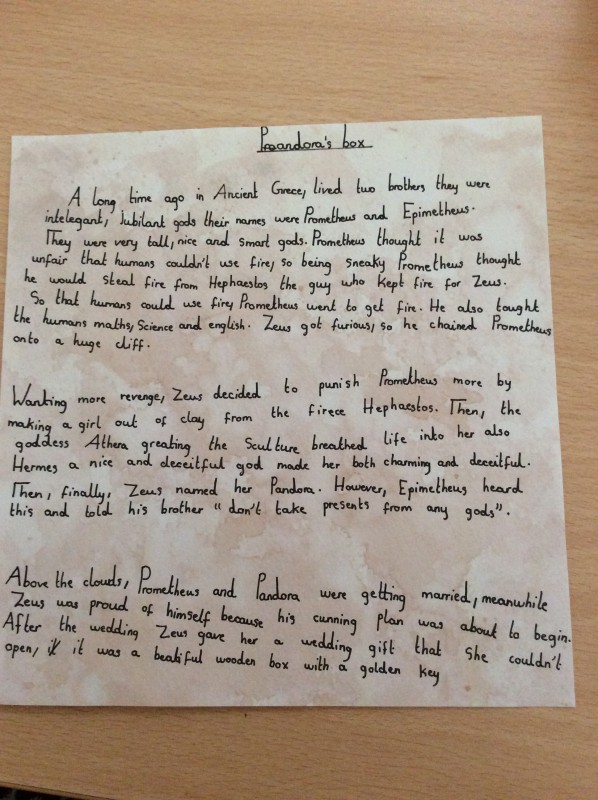 Praandora's box
A long time ago in Ancient Grece, lived two brothers they were
intelegant, Jubilant gods their names were Prometheus and Epimetheus.
They were very tall, nice and smart gods. Prometheus thought it was
unfair that humans couldn't use fire, so being sneaky Prometheus thought
he would steal fire from Hephaestos the guy who kept fire for Zeus.
So that humans could use fire, Prometheus went to get fire. He also tought
the humans maths, Science and english. Zeus got furious, so he chained Prometheus
onto a huge cliff.
Wanting more revenge, Zeus decided to punish Prometheus more by
making a girl out of clay from the firece Hephaestos. Then, the
goddess Athera greating the Sculture breathed life into her also
Hermes a nice and deceitful god made her both charming and deceitful.
Then, finally, Zeus named her Pandora. However, Epimetheus heard
this and told his brother "don't take presents from any gods".
Above the clouds, Prometheus and Pandora were getting married, meanwhile
Zeus was proud of himself because his cunning plan was about to begin.
After the wedding Zeus gave her a wedding gift that she couldn't
open, it was a beatiful wooden box with a golden key